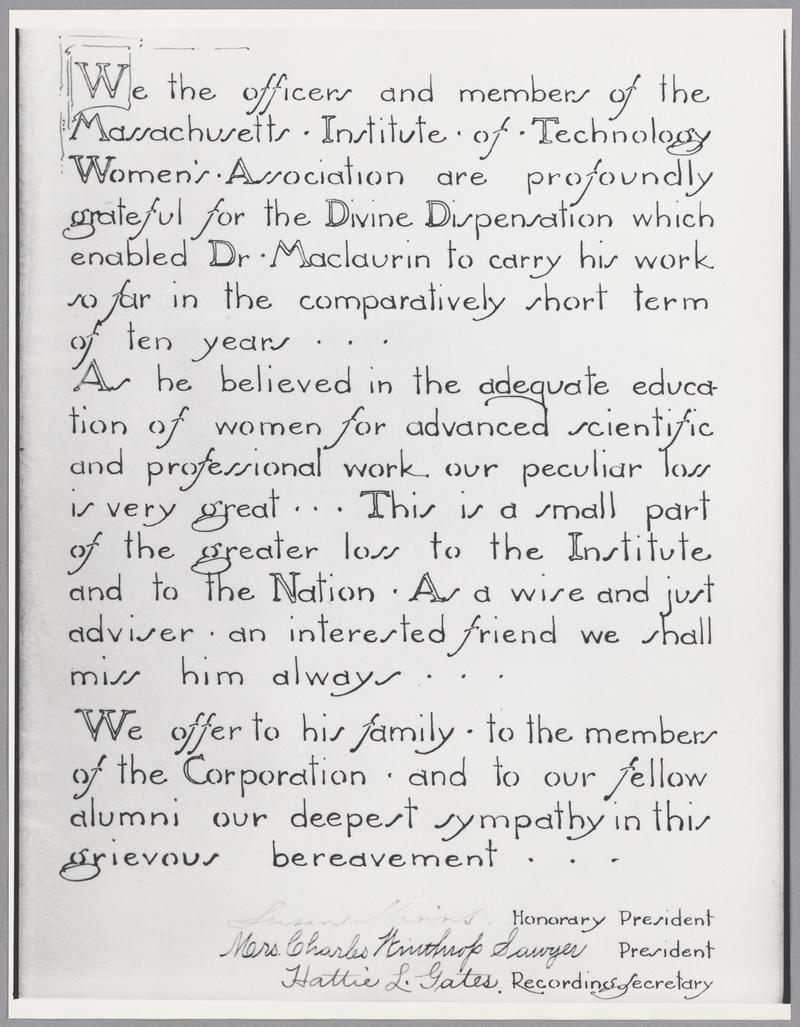 We the officers and members of the
Massachusetts · Institute · of · Technology
Women's · Association are profoundly
grateful for the Divine Dispensation which
enabled Dr · Maclaurin to carry his work
so far in the comparatively short term
of ten years · · ·
As he believed in the adequate educa-
tion of women for advanced scientific
and professional work our peculiar loss
is very great · · · This is a small part
of the greater loss to the Institute
and to the Nation · As a wise and just
adviser · an interested friend we shall
miss him always · · ·
We offer to his family · to the members
of the Corporation · and to our fellow
alumni our deepest sympathy in this
grievous bereavement · · ·
Susan Minns. Honorary President
Mrs. Charles Winthrop Sawyer President
Hattie L. Gates. Recording Secretary